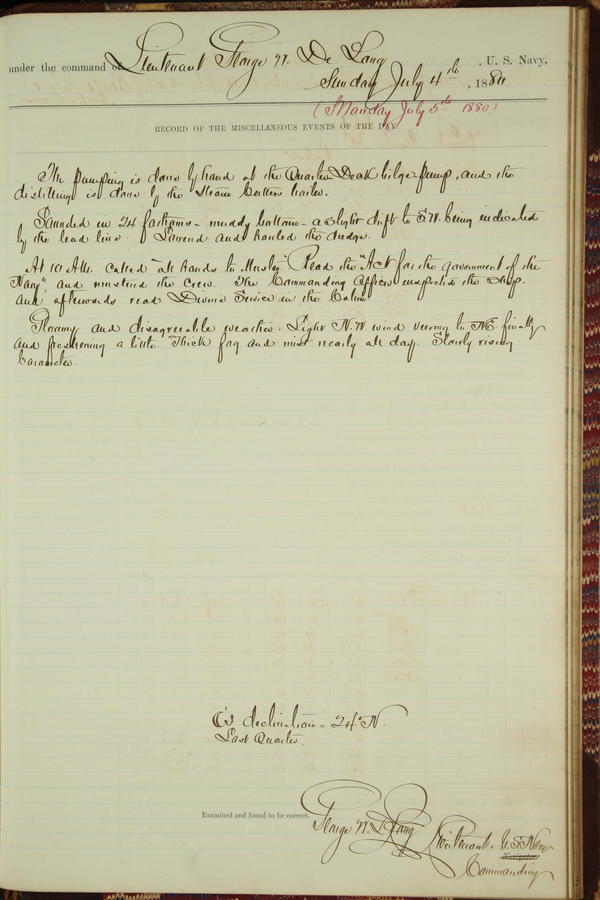 under the command of Lieutenant George W. De Long, U. S. Navy,
Sunday July 4th, 1880
(Monday July 5th 1880)
RECORD OF THE MISCELLANEOUS EVENTS OF THE DAY.
The pumping is done by hand at the Quarter Deck bilge pump, and the
distilling is done by the Steam Cutters boiler.
Sounded in 24 fathoms - muddy bottom - a slight drift to S.W. being indicated
by the lead line. Lowered and hauled the dredge.
At 10 A.M. called "all hands to Muster" Read the "Act for the government of the
Navy", and mustered the Crew. The Commanding Officer inspected the Ship.
and afterwards read Divine Service in the Cabin.
Gloomy and disagreeable weather. Light N.W. wind veering to NE finally
and freshening a little. Thick fog and mist nearly all day. Slowly rising
barometer.
☾'s declination = 24° N.
Last Quarter.
Examined and found to be correct.
George W. De Long Lieutenant, U.S. Navy
Navigator.
Commanding